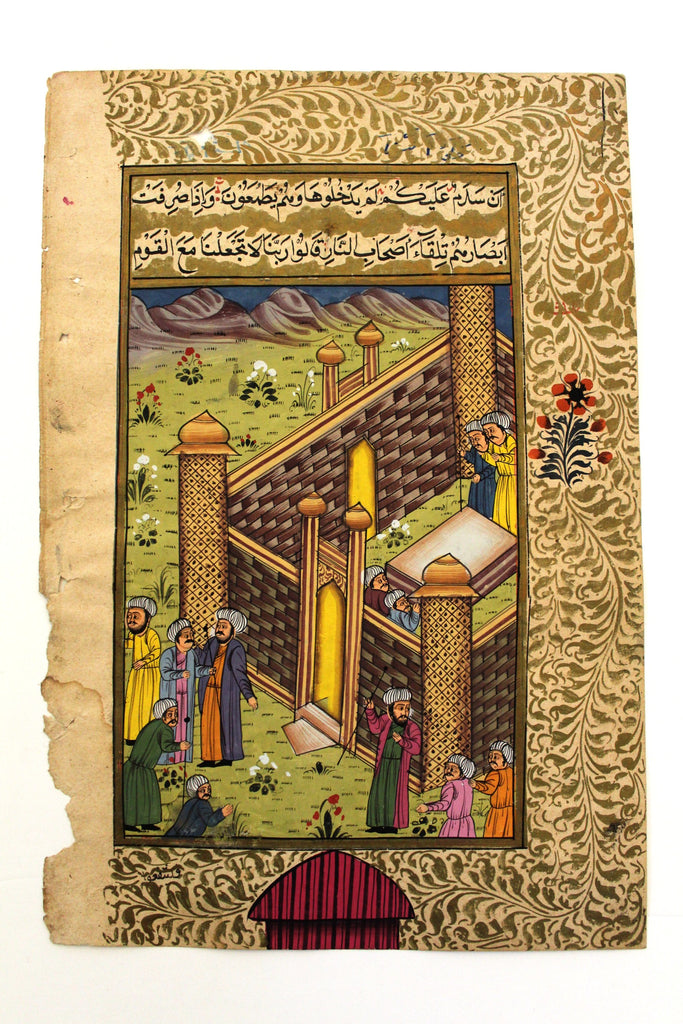 ان سلام عليكم لم يدخلوها وهم يطمعون واذا صرفت
ابصارهم تلقاء اصحاب النار قالوا ربنا لا تجعلنا مع القوم